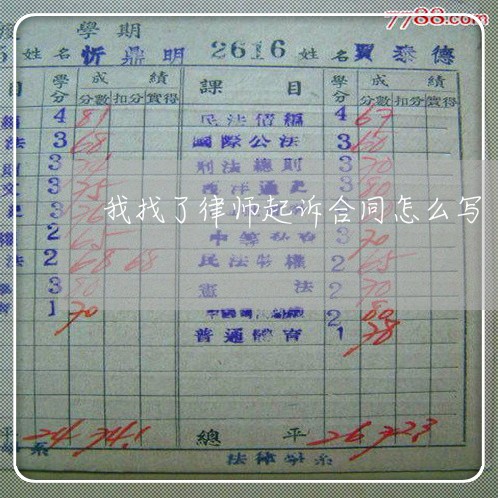 7788.com
學期
5 姓名 忻鼎明 2616 姓名 賈泰德
目 學分 成績 課目 學分 成績
分數 扣分 實得 分數 扣分 實得
4 81 民法債編 4 67
法 3 68 國際公法 3 60
3 刑法總則 3 70
文 3 75 西洋通史 3 80
史 3 76 3
我找了律师起诉合同怎么写
權 2 65 3 70
法 2 68 68 民法物權 2 65
3 80 憲法 2 70
育 1 70 2 80
普通體育 1 78
平 24 74.1 總平 26 72.3
系 法律學系